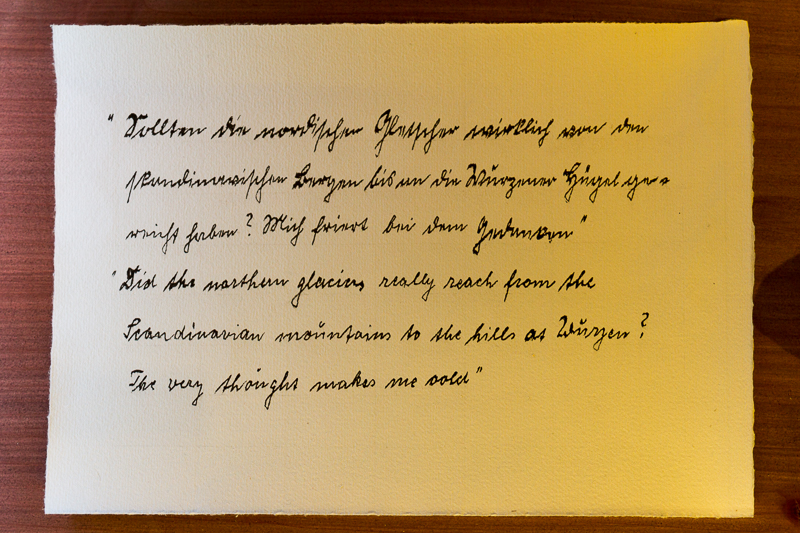 "Sollten die nordischen Gletscher wirklich von den
skandinavischen Bergen bis an die Wurzener Hügel ge-
reicht haben? Mich friert bei dem Gedanken"
"Did the northern glaciers really reach from the
Scandinavian mountains to the hills at Wurzen?
The very thought makes me cold"